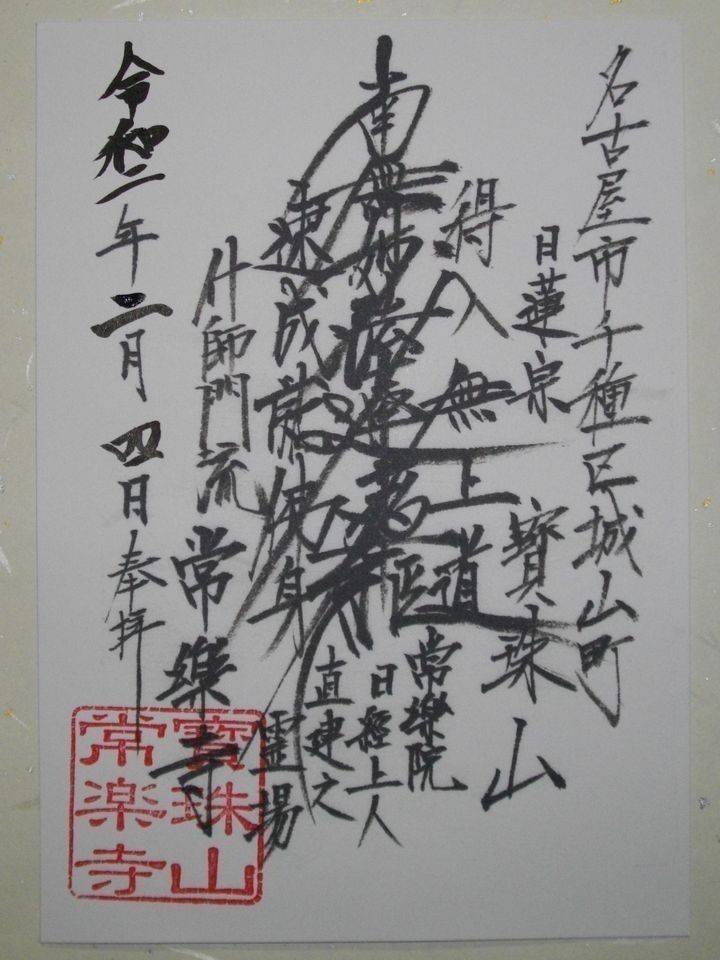 名古屋市千種区城山町
日蓮宗 寶珠山
得入無上道
南無妙法蓮華
常樂院
日經上人
直建之
霊場
速成就佛身
什師門流 常樂寺
令和二年二月四日奉拝
寶珠山
常楽寺